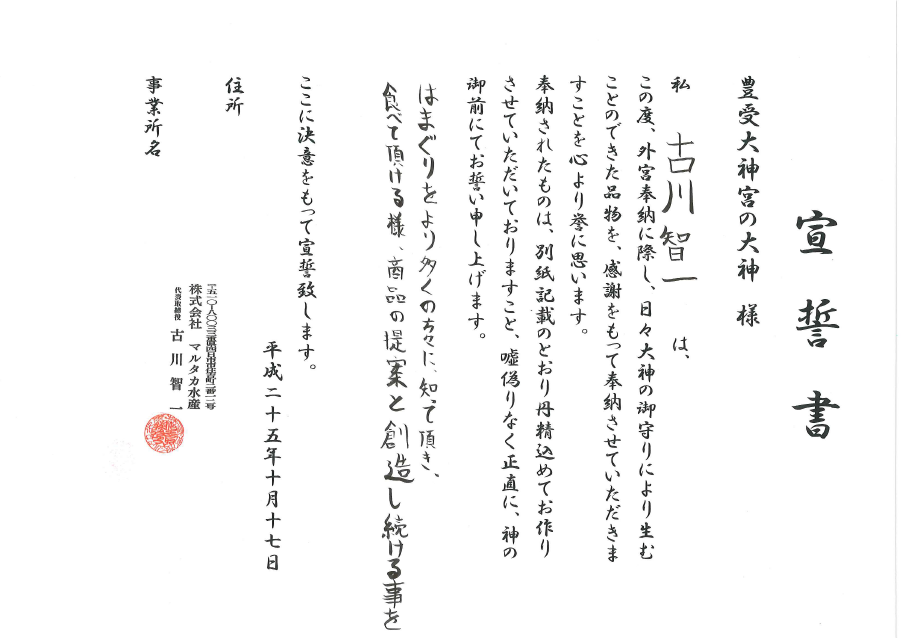 宣誓書
豊受大神宮の大神 様
私 古川智一 は、
この度、外宮奉納に際し、日々大神の御守りにより生む
ことのできた品物を、感謝をもって奉納させていただきま
すことを心より誉に思います。
奉納されたものは、別紙記載のとおり丹精込めてお作り
させていただいておりますこと、嘘偽りなく正直に、神の
御前にてお誓い申し上げます。
はまぐりをより多くの方々に、知って頂き、
食べて頂ける様、商品の提案と創造し続ける事を
ここに決意をもって宣誓致します。
平成二十五年十月十七日
住所
株式会社 マルタカ水産
代表取締役 古川智一
事業所名